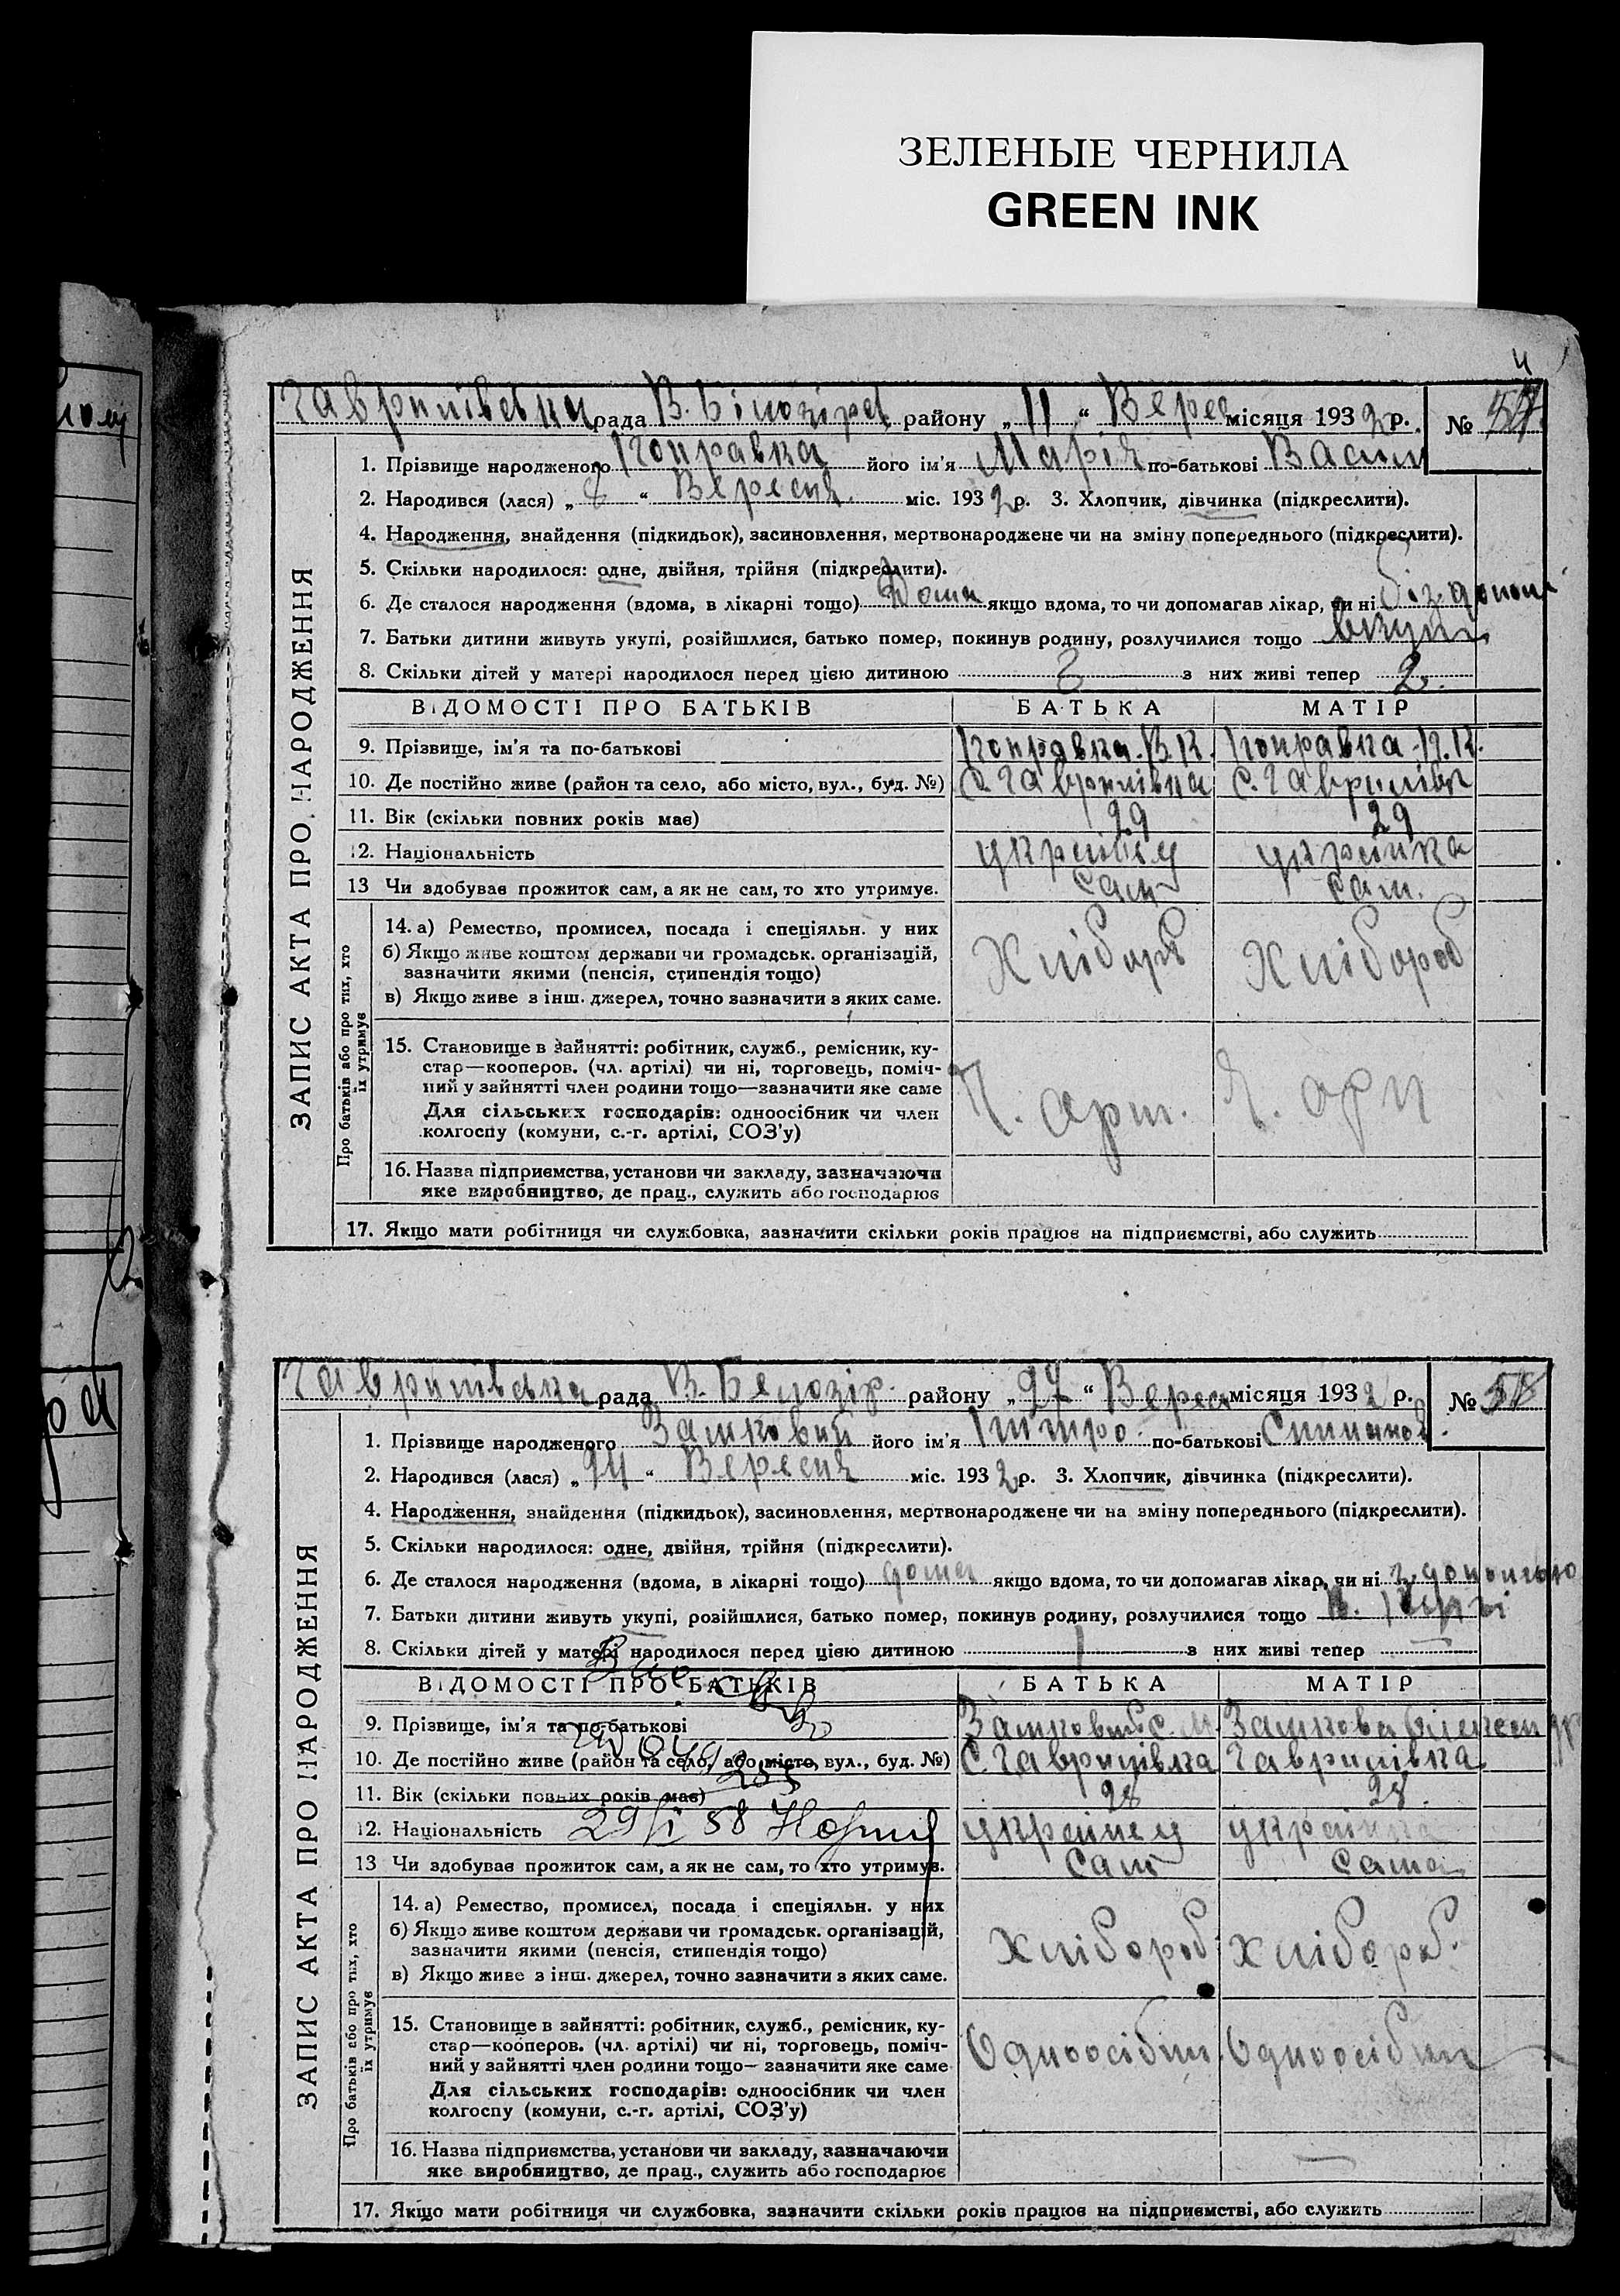 ЗЕЛЕНЫЕ ЧЕРНИЛА
GREEN INK
4
Гаврилівська рада В. Білозірс району „ 11 “ Верес місяця 1932 р. № 57
1. Прізвище народженого Коправка його ім'я Марія по-батькові Васил
2. Народився (лася) „ 8 “ Вересня міс. 1932 р. 3. Хлопчик, дівчинка (підкреслити).
4. Народження, знайдення (підкидьок), засиновлення, мертвонароджене чи на зміну попереднього (підкреслити).
5. Скільки народилося: одне, двійня, трійня (підкреслити).
6. Де сталося народження (вдома, в лікарні тощо) Дома якщо вдома, то чи допомагав лікар, чи ні
7. Батьки дитини живуть укупі, розійшлися, батько помер, покинув родину, розлучилися тощо вкупі
8. Скільки дітей у матері народилося перед цією дитиною 2 з них живі тепер 2.
ВІДОМОСТІ ПРО БАТЬКІВ БАТЬКА МАТІР
9. Прізвище, ім'я та по-батькові Коправка В. К. Коправка
10. Де постійно живе (район та село, або місто, вул., буд. №) С. Гаврилівка С. Гаврилівк
11. Вік (скільки повних років має) 29 29
12. Національність українец українка
13 Чи здобував прожиток сам, а як не сам, то хто утримує. сам сам.
14. а) Ремество, промисел, посада і спеціяльн. у них
б) Якщо живе коштом держави чи громадськ. організацій,
зазначити якими (пенсія, стипендія тощо)
в) Якщо живе з інш. джерел, точно зазначити з яких саме.
Хлібороб Хлібороб
15. Становище в зайнятті: робітник, служб., ремісник, ку-
стар—кооперов. (чл. артілі) чи ні, торговець, поміч-
ний у зайнятті член родини тощо—зазначити яке саме
Для сільських господарів: одноосібник чи член
колгоспу (комуни, с.-г. артілі, СОЗ'у)
Ч. арт. Ч. арт
16. Назва підприємства, установи чи закладу, зазначаючи
яке виробництво, де прац., служить або господарює
17. Якщо мати робітниця чи службовка, зазначити скільки років працює на підприємстві, або служить
ЗАПИС АКТА ПРО НАРОДЖЕННЯ
Про батьків або про тих, хто
їх утримує
Гаврилівська рада В. Білозір. району „ 27 “ Верес місяця 1932 р. № 58
1. Прізвище народженого Замковий його ім'я по-батькові
2. Народився (лася) „ 24 “ Вересня міс. 1932 р. 3. Хлопчик, дівчинка (підкреслити).
4. Народження, знайдення (підкидьок), засиновлення, мертвонароджене чи на зміну попереднього (підкреслити).
5. Скільки народилося: одне, двійня, трійня (підкреслити).
6. Де сталося народження (вдома, в лікарні тощо) дома якщо вдома, то чи допомагав лікар, чи ні
7. Батьки дитини живуть укупі, розійшлися, батько помер, покинув родину, розлучилися тощо
8. Скільки дітей у матері народилося перед цією дитиною 1 з них живі тепер —
ВІДОМОСТІ ПРО БАТЬКІВ БАТЬКА МАТІР
9. Прізвище, ім'я та по-батькові Замковий С. М. Замкова
10. Де постійно живе (район та село, або місто, вул., буд. №) С. Гаврилівка Гаврилівка
11. Вік (скільки повних років має) 28 28.
12. Національність 29/I 58 українец українка
13 Чи здобував прожиток сам, а як не сам, то хто утримує. Сам Сама
14. а) Ремество, промисел, посада і спеціяльн. у них
б) Якщо живе коштом держави чи громадськ. організацій,
зазначити якими (пенсія, стипендія тощо)
в) Якщо живе з інш. джерел, точно зазначити з яких саме.
хлібороб хлібороб.
15. Становище в зайнятті: робітник, служб., ремісник, ку-
стар—кооперов. (чл. артілі) чи ні, торговець, поміч-
ний у зайнятті член родини тощо— зазначити яке саме
Для сільських господарів: одноосібник чи член
колгоспу (комуни, с.-г. артілі, СОЗ'у)
Одноосібн. Одноосібн
16. Назва підприємства, установи чи закладу, зазначаючи
яке виробництво, де прац., служить або господарює
17. Якщо мати робітниця чи службовка, зазначити скільки років працює на підприємстві, або служить
ЗАПИС АКТА ПРО НАРОДЖЕННЯ
Про батьків або про тих, хто
їх утримує